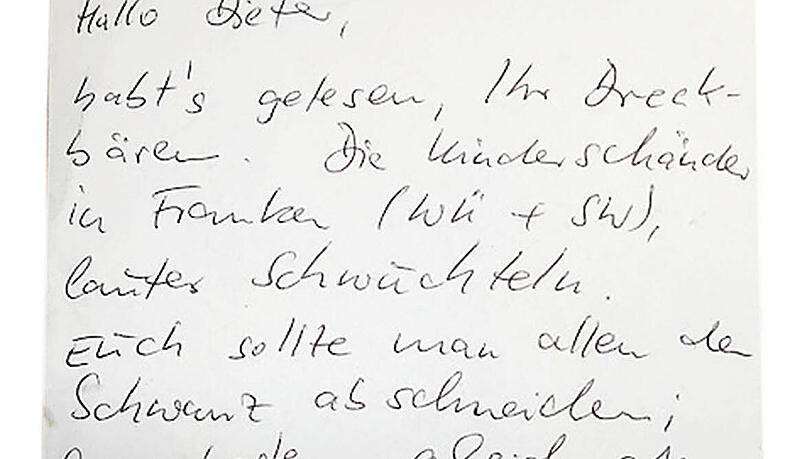 Hallo Dieter,
habt's gelesen, Ihr Dreck-
bären. Die Kinderschänder
in Franken (WÜ + SW),
lauter Schwuchteln.
Euch sollte man allen den
Schwanz abschneiden;